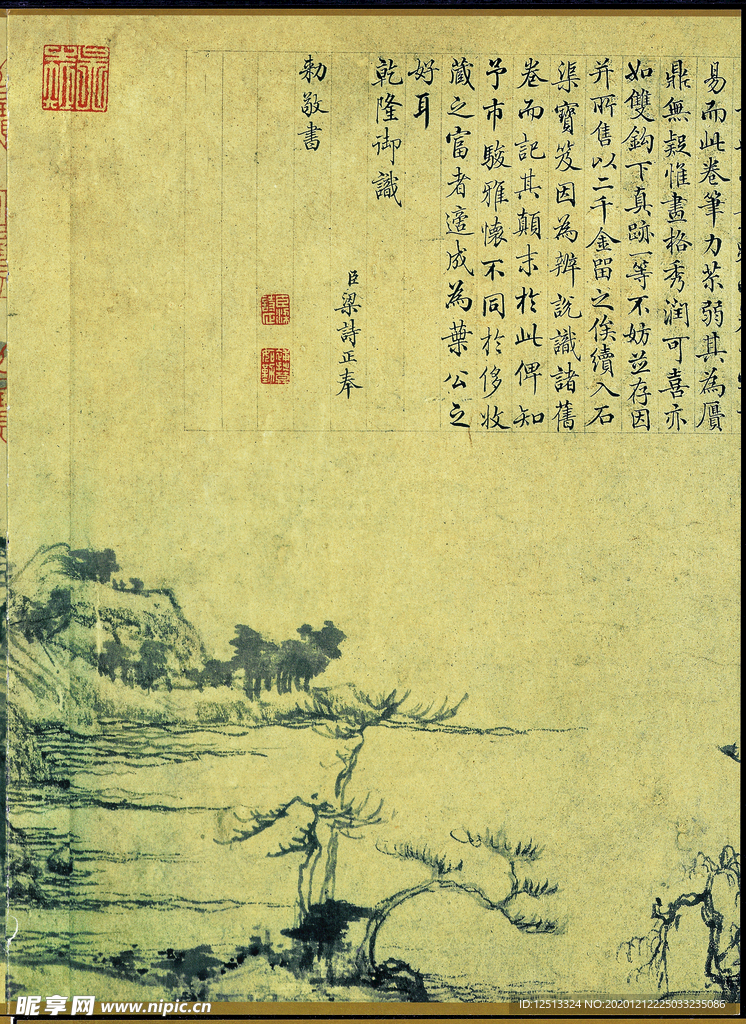 易而此卷筆力苶弱其為贗
鼎無疑惟畫格秀润可喜亦
如雙鈎下真跡一等不妨並存因
并所售以二千金留之俟續入石
渠寶笈因為辨説識諸舊
卷而記其顛末於此俾知
予市駿雅懷不同於侈收
藏之富者適成為葉公之
好耳
乾隆御識
臣梁詩正奉
勅敬書
昵享网 www.nipic.cn
ID:12513324 NO:20201212225033235086